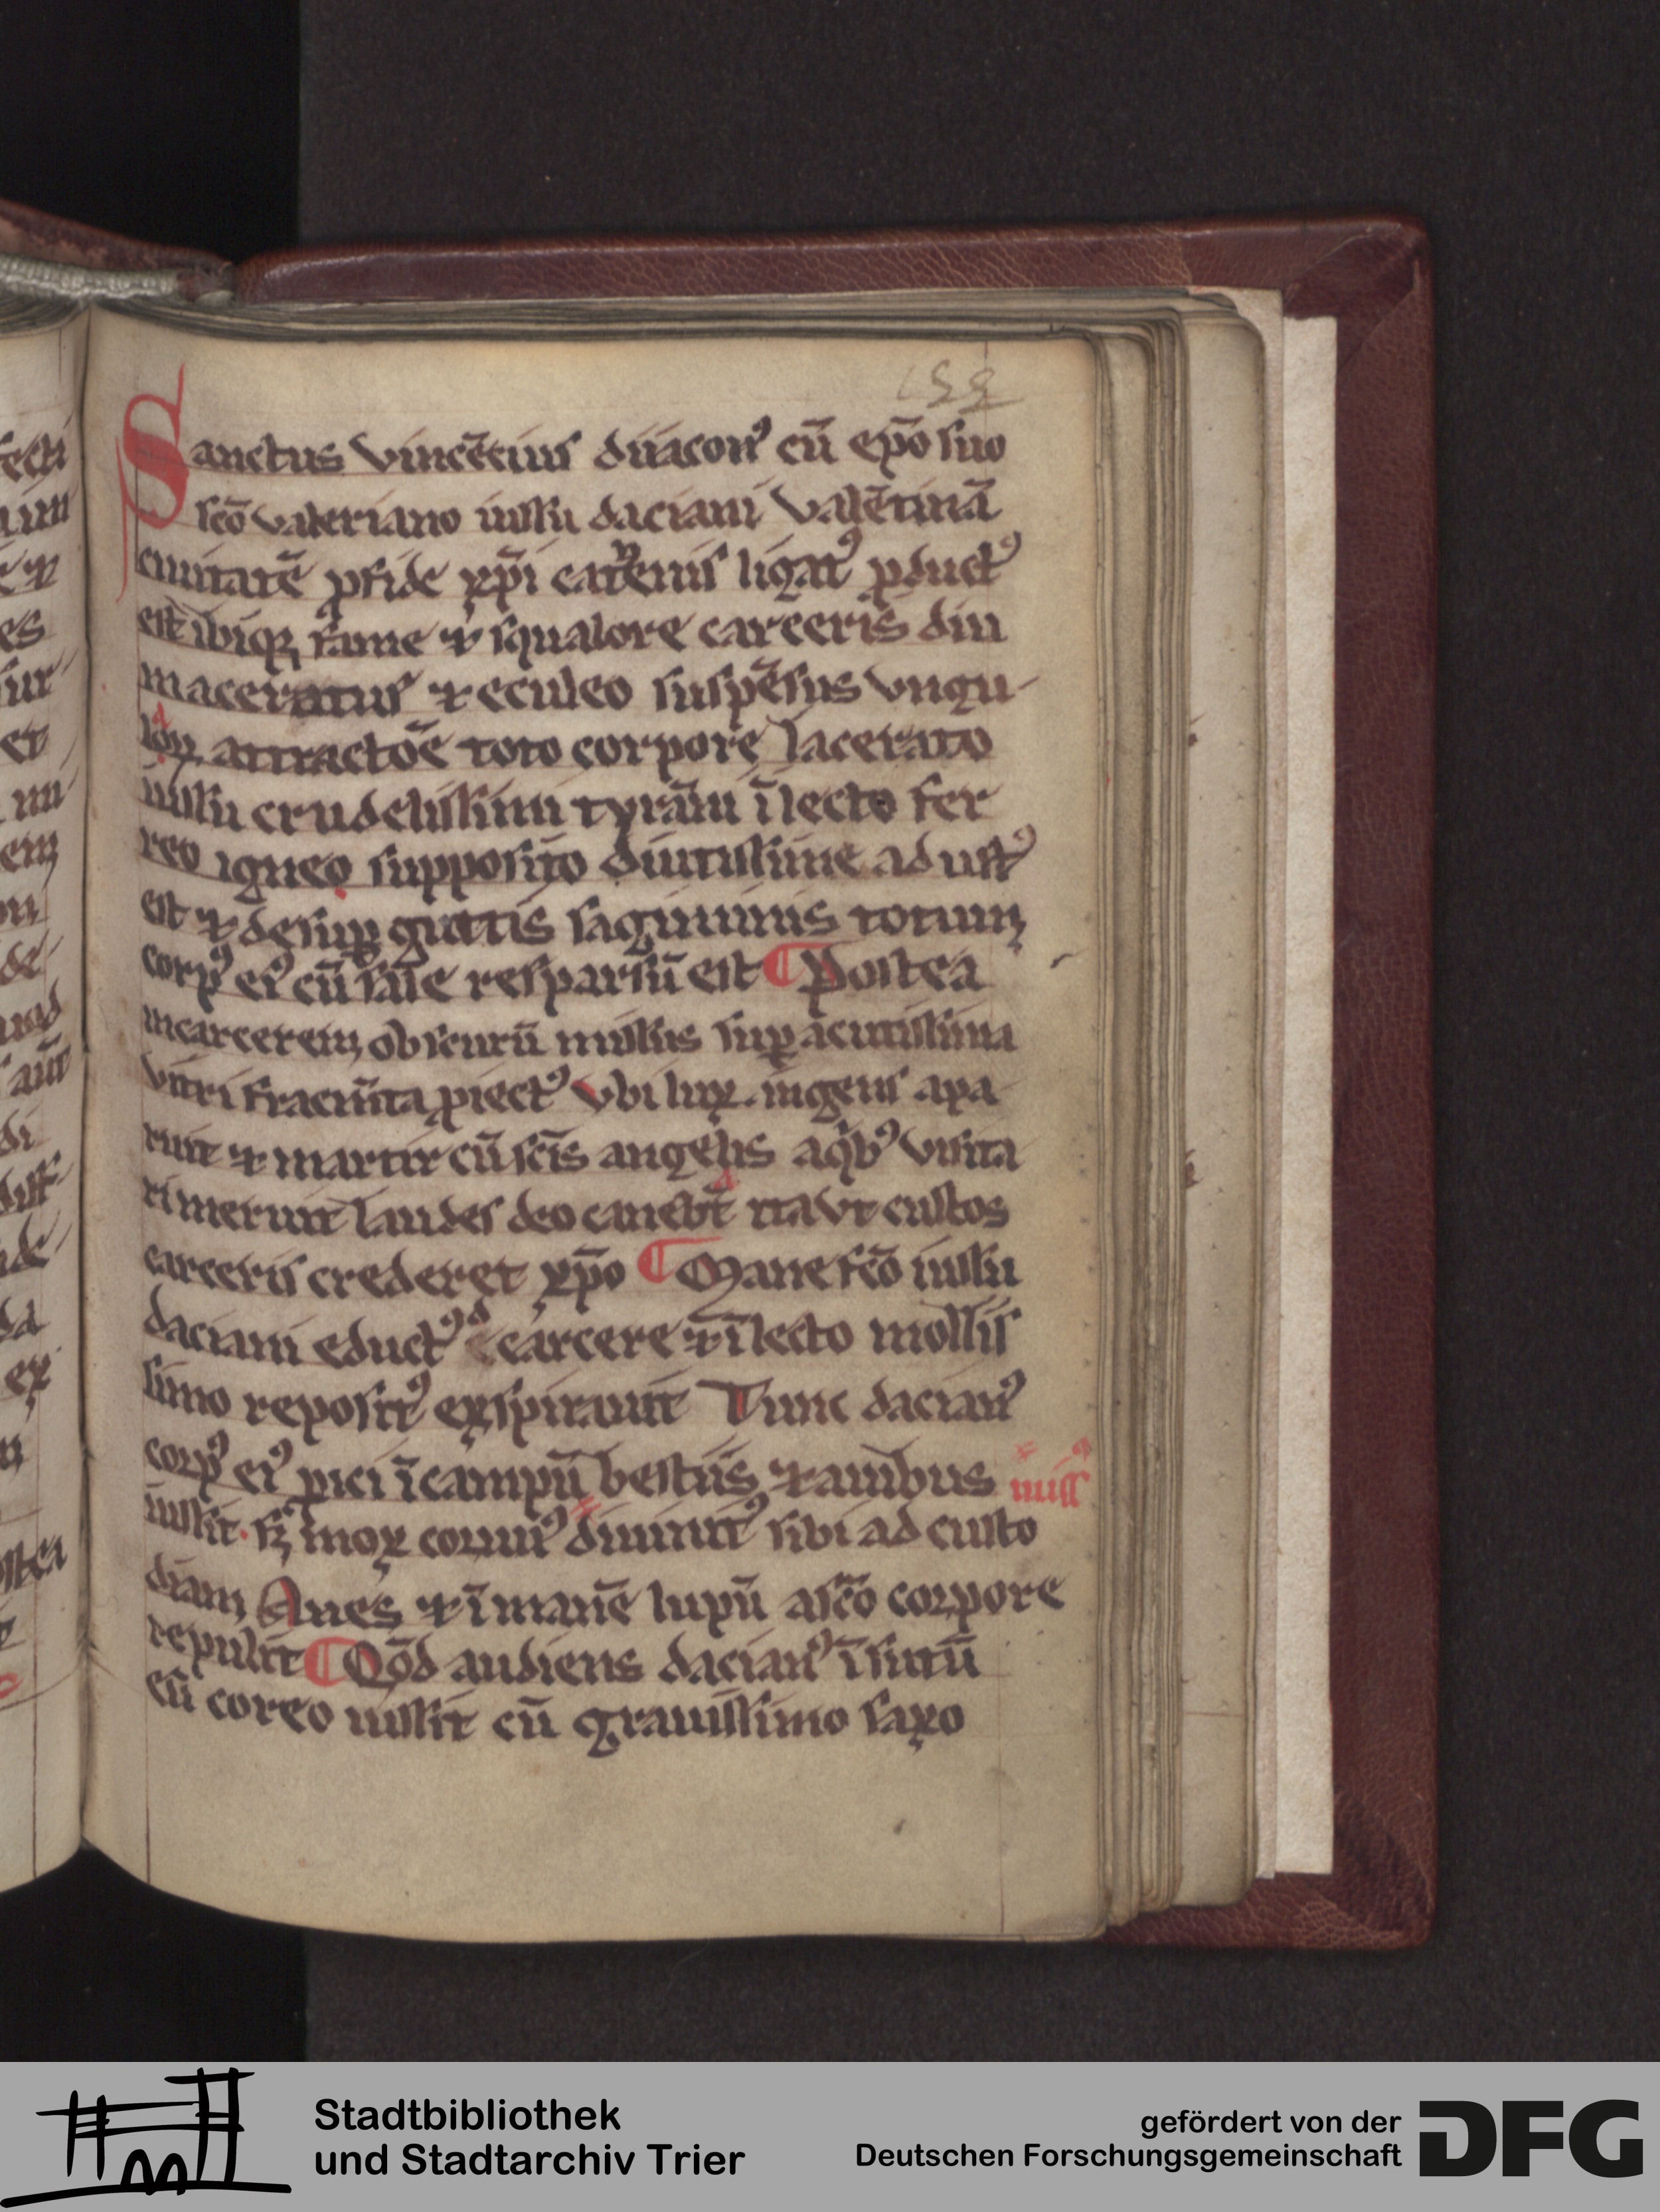 155
Sanctus vincẽtius diiacon⁹ cũ ep̃o suo
sc̃o valeriano iussu daciani valẽtinã
ciuitatẽ ꝓ fide xp̃i catenis ligat⁹ ꝓduct⁹
est ibiqꝫ fame ⁊ squalore carceris diu
maceratus ⁊ eculeo suspẽsus vngu
loꝝ attractõe toto corpore lacerato
iussu crudelissimi tyrãni ĩ lecto fer
reo igneo supposito diutissime adust⁹
est ⁊ desuꝑ guttis sagiminis totum
corp⁹ ei⁹ cũ sale resparsũ est ¶ Postea
in carcerem obscurũ missus suꝑ acutissima
vitri fracm̃ta ꝓiect⁹ vbi lux ingens apa
ruit ⁊ martir cũ sc̃is angelis a qⁱb⁹ visita
ri meruit laudes deo canebãt ita vt custos
carceris crederet xp̃o ¶ Mane fc̃o iussu
daciani educt⁹ de carcere ⁊ ĩ lecto mollis
simo reposit⁹ exspirauit Tunc dacian⁹
corp⁹ ei⁹ ꝓici ĩ campũ bestiis ⁊ auibus
iussit. sꝫ mox coruus diuinit⁹ sibi ad custo
miss⁹
diam Aues ⁊ ĩmanẽ lupũ a sc̃o corpore
repulit ¶ Qod̃ audiens dacian⁹ ĩsutũ
eũ coreo iussit cũ grauissimo saxo
Stadtbibliothek
und Stadtarchiv Trier
gefördert von der
Deutschen Forschungsgemeinschaft
DFG